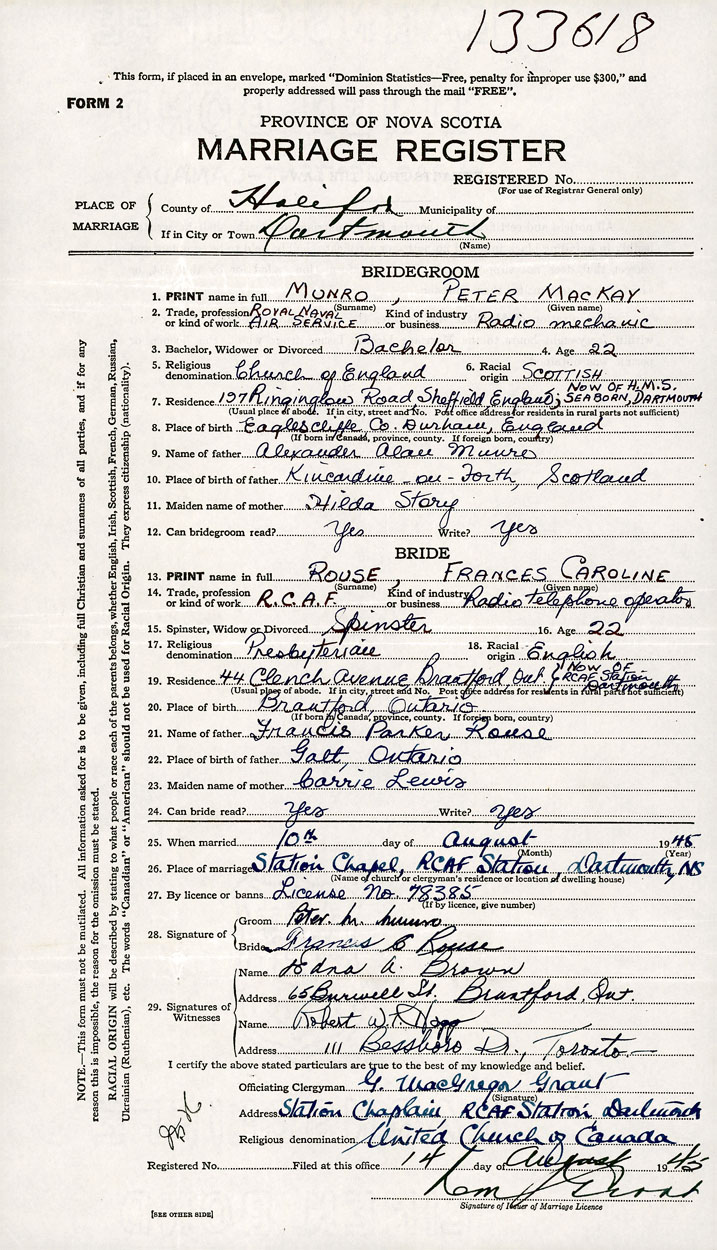 133618
This form, if placed in an envelope, marked "Dominion Statistics—Free, penalty for improper use $300," and
properly addressed will pass through the mail "FREE".
FORM 2
PROVINCE OF NOVA SCOTIA
MARRIAGE REGISTER
REGISTERED No.
(For use of Registrar General only)
PLACE OF MARRIAGE
County of Halifax Municipality of
If in City or Town Dartmouth
(Name)
BRIDEGROOM
1. PRINT name in full MUNRO, PETER MACKAY
(Surname) (Given name)
2. Trade, profession or kind of work ROYAL NAVAL AIR SERVICE Kind of industry or business Radio mechanic
3. Bachelor, Widower or Divorced Bachelor 4. Age 22
5. Religious denomination Church of England 6. Racial origin SCOTTISH
7. Residence 197 Ringinglow Road, Sheffield England; NOW OF H.M.S. SEABORN, DARTMOUTH
(Usual place of abode. If in city, street and No. Post office address for residents in rural parts not sufficient)
8. Place of birth Eaglescliffe Co. Durham, England
(If born in Canada, province, county. If foreign born, country)
9. Name of father Alexander Alan Munro
10. Place of birth of father Kincardine-on-Forth, Scotland
11. Maiden name of mother Hilda Story
12. Can bridegroom read? Yes Write? Yes
BRIDE
13. PRINT name in full ROUSE, FRANCES CAROLINE
(Surname) (Given name)
14. Trade, profession or kind of work R.C.A.F. Kind of industry or business Radio telephone operator
15. Spinster, Widow or Divorced Spinster 16. Age 22
17. Religious denomination Presbyterian 18. Racial origin English
19. Residence 44 Clench Avenue Brantford, Ont. (NOW OF RCAF Station Dartmouth
(Usual place of abode. If in city, street and No. Post office address for residents in rural parts not sufficient)
20. Place of birth Brantford, Ontario
(If born in Canada, province, county. If foreign born, country)
21. Name of father Francis Parker Rouse
22. Place of birth of father Galt, Ontario
23. Maiden name of mother Carrie Lewis
24. Can bride read? Yes Write? Yes
25. When married 10th day of August 1945
(Month) (Year)
26. Place of marriage Station Chapel, RCAF Station, Dartmouth, NS
(Name of church or clergyman's residence or location of dwelling house)
27. By licence or banns License No. 78385
(If by licence, give number)
28. Signature of
Groom Peter M. Munro
Bride Frances C Rouse
29. Signatures of Witnesses
Name Edna A. Brown
Address 65 Burwell St. Brantford, Ont.
Name Robert W. R. Hogg
Address 111 Bessboro D., Toronto.
I certify the above stated particulars are true to the best of my knowledge and belief.
Officiating Clergyman G. MacGregor Grant
(Signature)
Address Station Chaplain, RCAF Station, Dartmouth
Religious denomination United Church of Canada
Registered No. Filed at this office 14 day of August 1945
Signature of Issuer of Marriage Licence
[SEE OTHER SIDE]
NOTE.—This form must not be mutilated. All information asked for is to be given, including full Christian and surnames of all parties, and if for any
reason this is impossible, the reason for the omission must be stated.
RACIAL ORIGIN will be described by stating to what people or race each of the parents belongs, whether English, Irish, Scottish, French, German, Russian,
Ukrainian (Ruthenian), etc. The words "Canadian" or "American" should not be used for Racial Origin. They express citizenship (nationality).